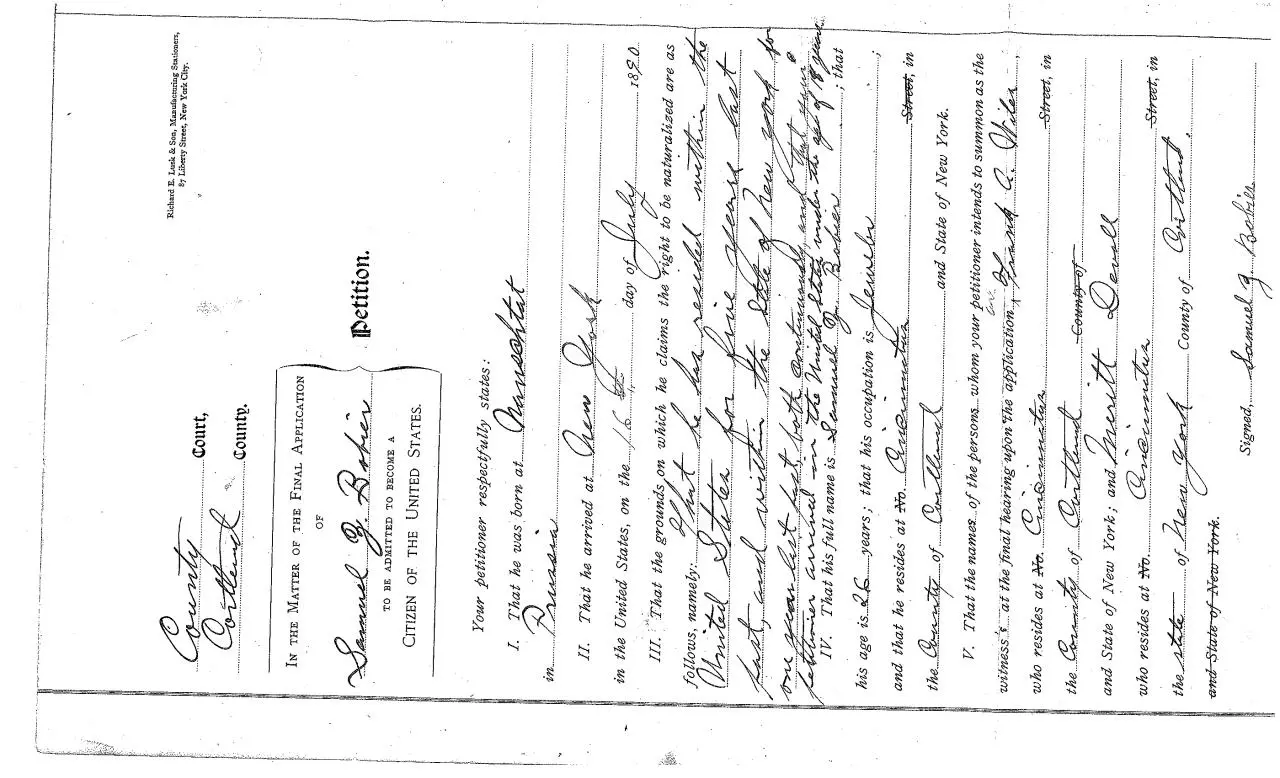 Richard E. Lusk & Son, Manufacturing Stationers,
87 Liberty Street, New York City.
County Court,
Cortland County.
IN THE MATTER OF THE FINAL APPLICATION
OF
Samuel J. Bobier
TO BE ADMITTED TO BECOME A
CITIZEN OF THE UNITED STATES.
Petition.
Your petitioner respectfully states:
I. That he was born at
in Prussia
II. That he arrived at New York
in the United States, on the 16 day of July 1890.
III. That the grounds on which he claims the right to be naturalized are as
follows, namely: That he has resided within the
United States for five years last
past, and within the state of New York for
one year last past both continuous, and that your
petitioner arrived in the United States under the age of 18 years
IV. That his full name is Samuel J. Bobier ; that
his age is 26 years; that his occupation is Jeweler ;
and that he resides at No. Cincinnatus Street, in
the County of Cortland and State of New York.
V. That the names of the persons whom your petitioner intends to summon as the
witness at the final hearing upon the application, are Frank A.
who resides at No. Cincinnatus Street, in
the County of Cortland County of
and State of New York; and Meritt Devall
who resides at No. Cincinnatus Street, in
the state of New York County of Cortland,
and State of New York.
Signed, Samuel J Bobier